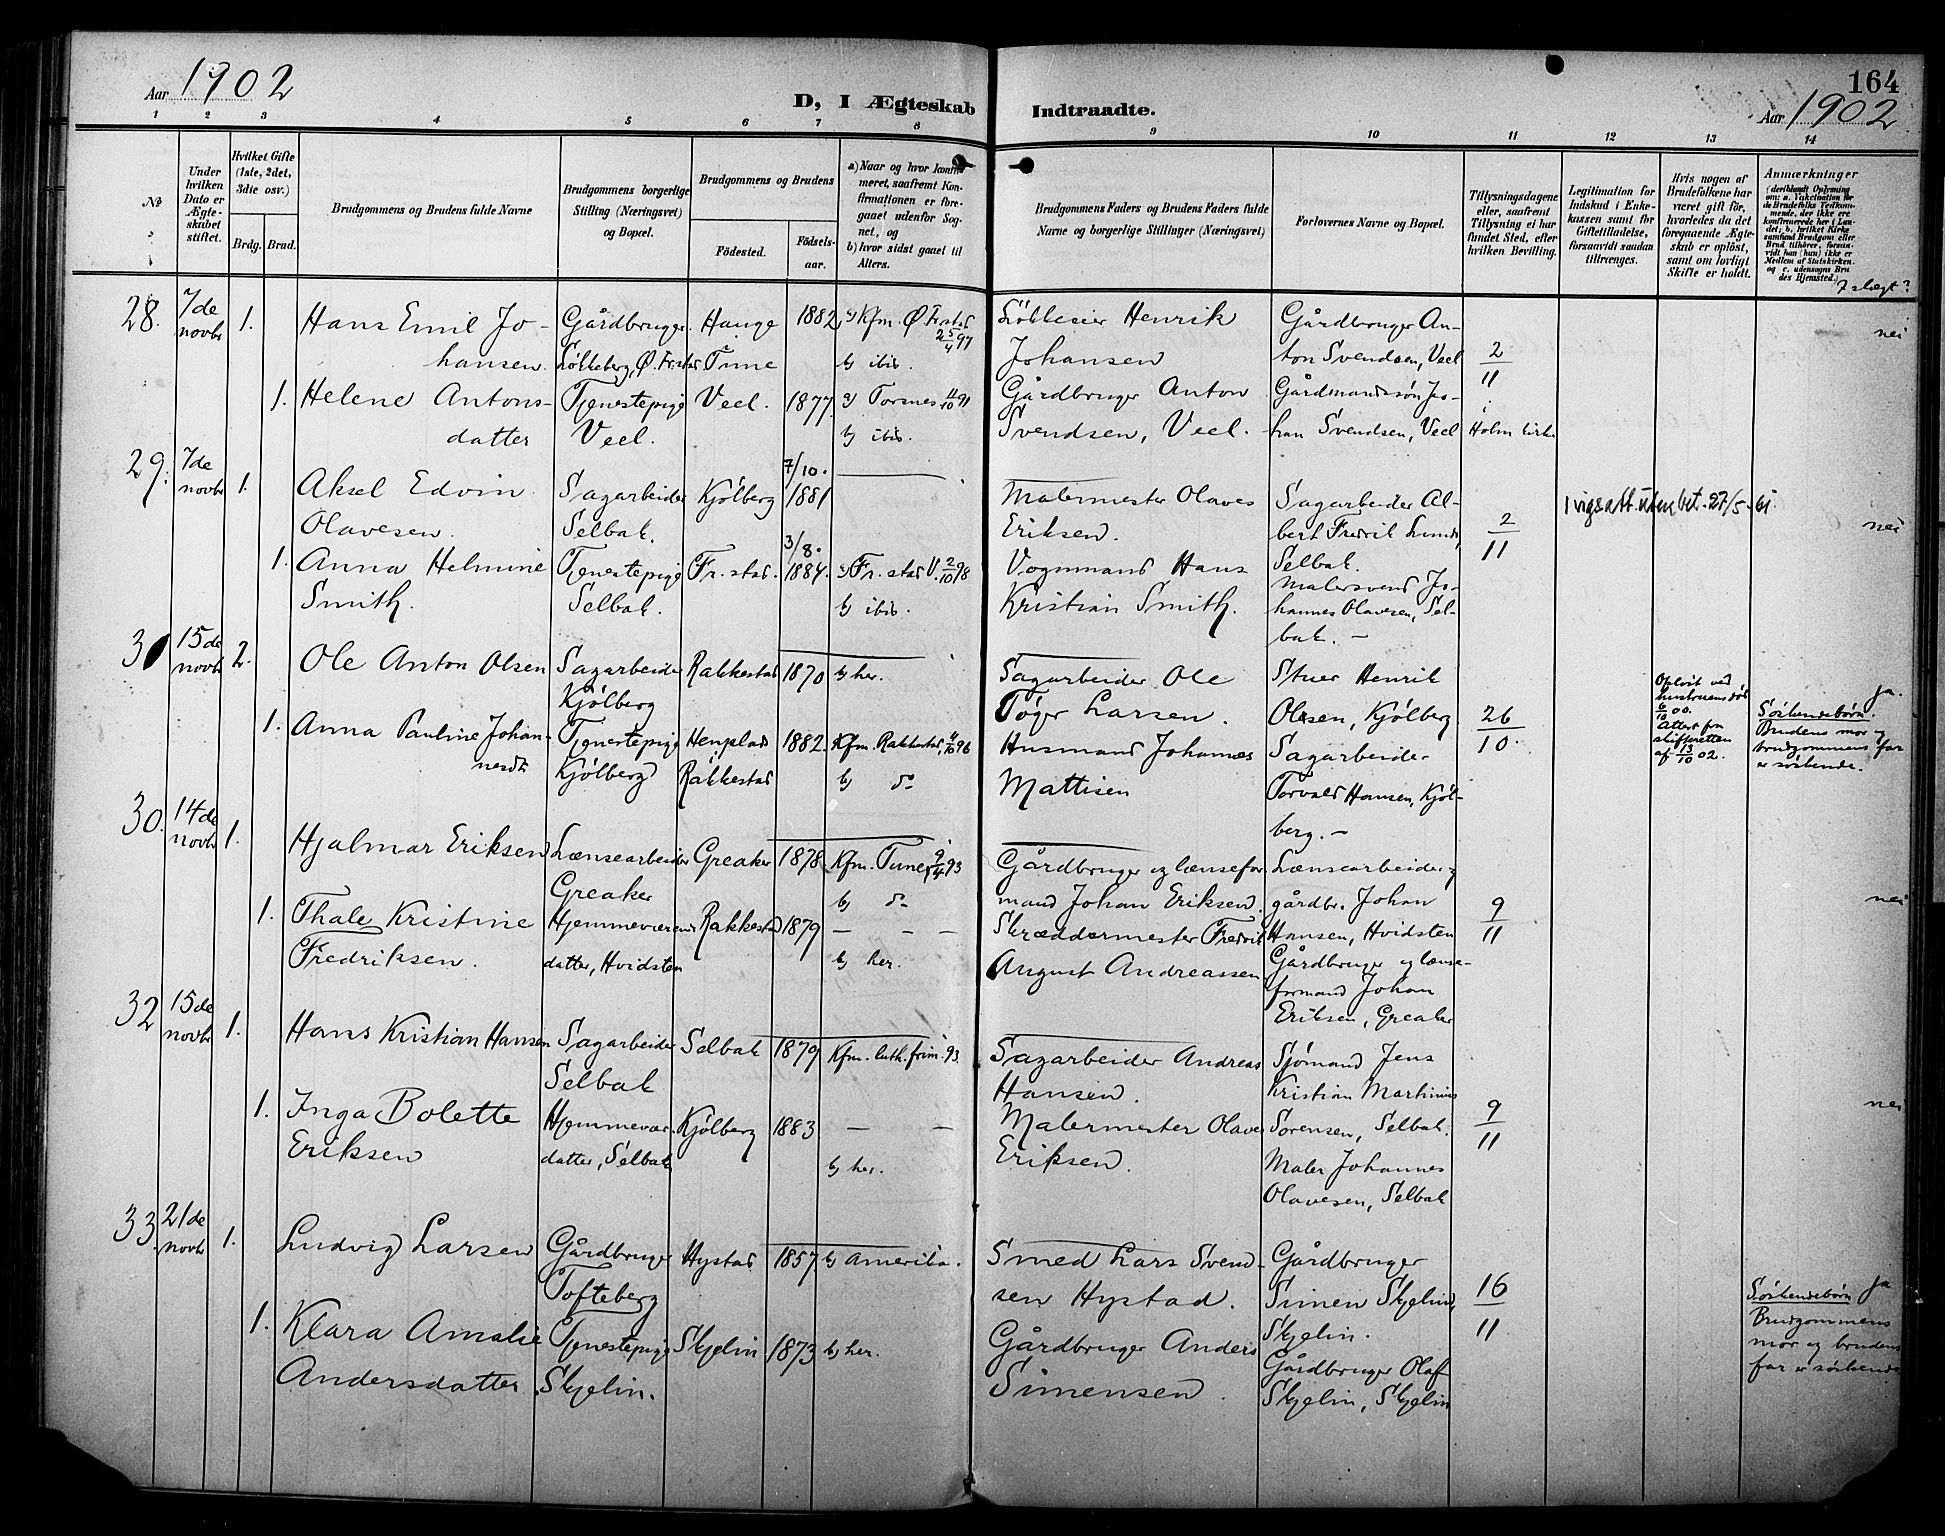 Aar 1902
D, I Ægteskab Indtraadte.
164
Aar 1902
1 2 3 4 5 6 7 8 9 10 11 12 13 14
No
Under hvilken Dato er Ægteskabet stiftet.
Hvilket Gifte (1ste, 2det, 3die osv.)
Brdg. Brud.
Brudgommens og Brudens fulde Navne
Brudgommens borgerlige Stilling (Næringsvei) og Bopæl.
Brudgommens og Brudens
Födested.
Födselsaar.
a) Naar og hvor konfirmeret, saafremt Konfirmationen er foregaaet udenfor Sognet, og
b) hvor sidst gaaet til Alters.
Brudgommens Faders og Brudens Faders fulde Navne og borgerlige Stillinger (Næringsvei)
Forlovernes Navne og Bopæl.
Tillysningsdagene eller, saafremt Tillysning ei har fundet Sted, efter hvilken Bevilling.
Legitimation for Indskud i Enkekassen samt for Giftetilladelse, forsaavidt saadan tiltrænges.
Hvis nogen af Brudefolkene har været gift för, hvorledes da det foregaaende Ægteskab er oplöst, samt om lovligt Skifte er holdt.
Anmærkninger
(deriblandt Oplysning om: a. Vakcination for de Brudefolks Vedkommende, der ikke ere konfirmerede her i Landet; b. hvilket Kirkesamfund Brudgom eller Brud tilhörer, forsaavidt han (hun) ikke er Medlem af Statskirken, og c. udensogns Brudes Hjemsted.)
I slægt?
28. 7de novbr 1. Hans Emil Johansen. Gårdbruger Løkkeberg, Ø. Fr.stad Hauge Tune 1882 a) Kfm. Ø Fr.stad 25/4 97
b) ibid.
Henrik Johansen
Gårdbruger Anton Svendsen, Veel
2/11
nei
1. Helene Antonsdatter Tjenestepige Veel. Veel. 1877. a) Torsnes 11/10 91
b) ibid.
Gårdbruger Anton Svendsen, Veel.
Gårdmandssøn Johan Svendsen, Veel
i Holm kirke
29. 7de novbr 1. Aksel Edvin Olavesen. Sagarbeider Selbak. Kjølberg 7/10. 1881
Malermester Olaves Eriksen.
Sagarbeider Albert Fredrik Lunde, Selbak.
2/11
1 vigs.att. utenbet. 27/5. 61.
nei
1. Anna Helmine Smith. Tjenestepige Selbak. Fr.stad. 3/8. 1884. a) Fr.stad V. 2/10 98
b) ibid.
Vognmand Hans Kristian Smith.
Malersvend Johannes Olavesen, Selbak. –
31 15de novbr 2. Ole Anton Olsen Sagarbeider Kjølberg Rakkestad 1870 b) her.
Sagarbeider Ole Tøger Larsen.
Stuer Henrik Olsen, Kjølberg.
26/10.
Opløst ved hustruens død 6/10 00. Attest fra skifteretten af 13/10 02.
ja.
Søskendebørn. Brudens mor og brudgommens far er søskende.
1. Anna Pauline Johannesdt. Tjenestepige Kjølberg Henplad Rakkestad 1882. Kfm. Rakkestad, 4/10 96
b) do
Husmand Johannes Mattisen
Sagarbeider Torvald Hansen, Kjølberg. –
30. 14de novbr 1. Hjalmar Eriksen Lænsearbeider Greaker Greaker 1878 Kfm. Tune 9/4 93
b) do
Gårdbruger og lænseformand Johan Eriksen.
Lænsearbeider og gårdbr. Johan Hansen, Hvidsten
9/11
nei
1. Thale Kristine Fredriksen. Hjemmeværende datter, Hvidsten Rakkestad 1879 – – –
b) her.
Skræddermester Fredrik August Andreassen
Gårdbruger og lænseformand Johan Eriksen, Greaker
32 15de novbr 1. Hans Kristian Hansen Sagarbeider Selbak Selbak 1879 Kfm. luth. frim. 93.
Sagarbeider Andreas Hansen.
Sjømand Jens Kristian Martinius Sørensen, Selbak.
9/11
nei
1. Inga Bolette Eriksen Hjemmevær. datter, Selbak Kjølberg 1883 – –
b) her.
Malermester Olaves Eriksen.
Maler Johannes Olavesen, Selbak
33. 21de novbr 1. Ludvig Larsen Gårdbruger Tofteberg Hystad 1857 b) Amerika.
Smed Lars Svendsen Hystad.
Gårdbruger Simen Skjelin, Skjelin.
16/11
ja
Søskendebørn Brudgommens mor og brudens far er søskende
1. Klara Amalie Andersdatter. Tjenestepige Skjelin. Skjelin 1873 b) her.
Gårdbruger Anders Simensen.
Gårdbruger Olaf Skjelin, Skjelin